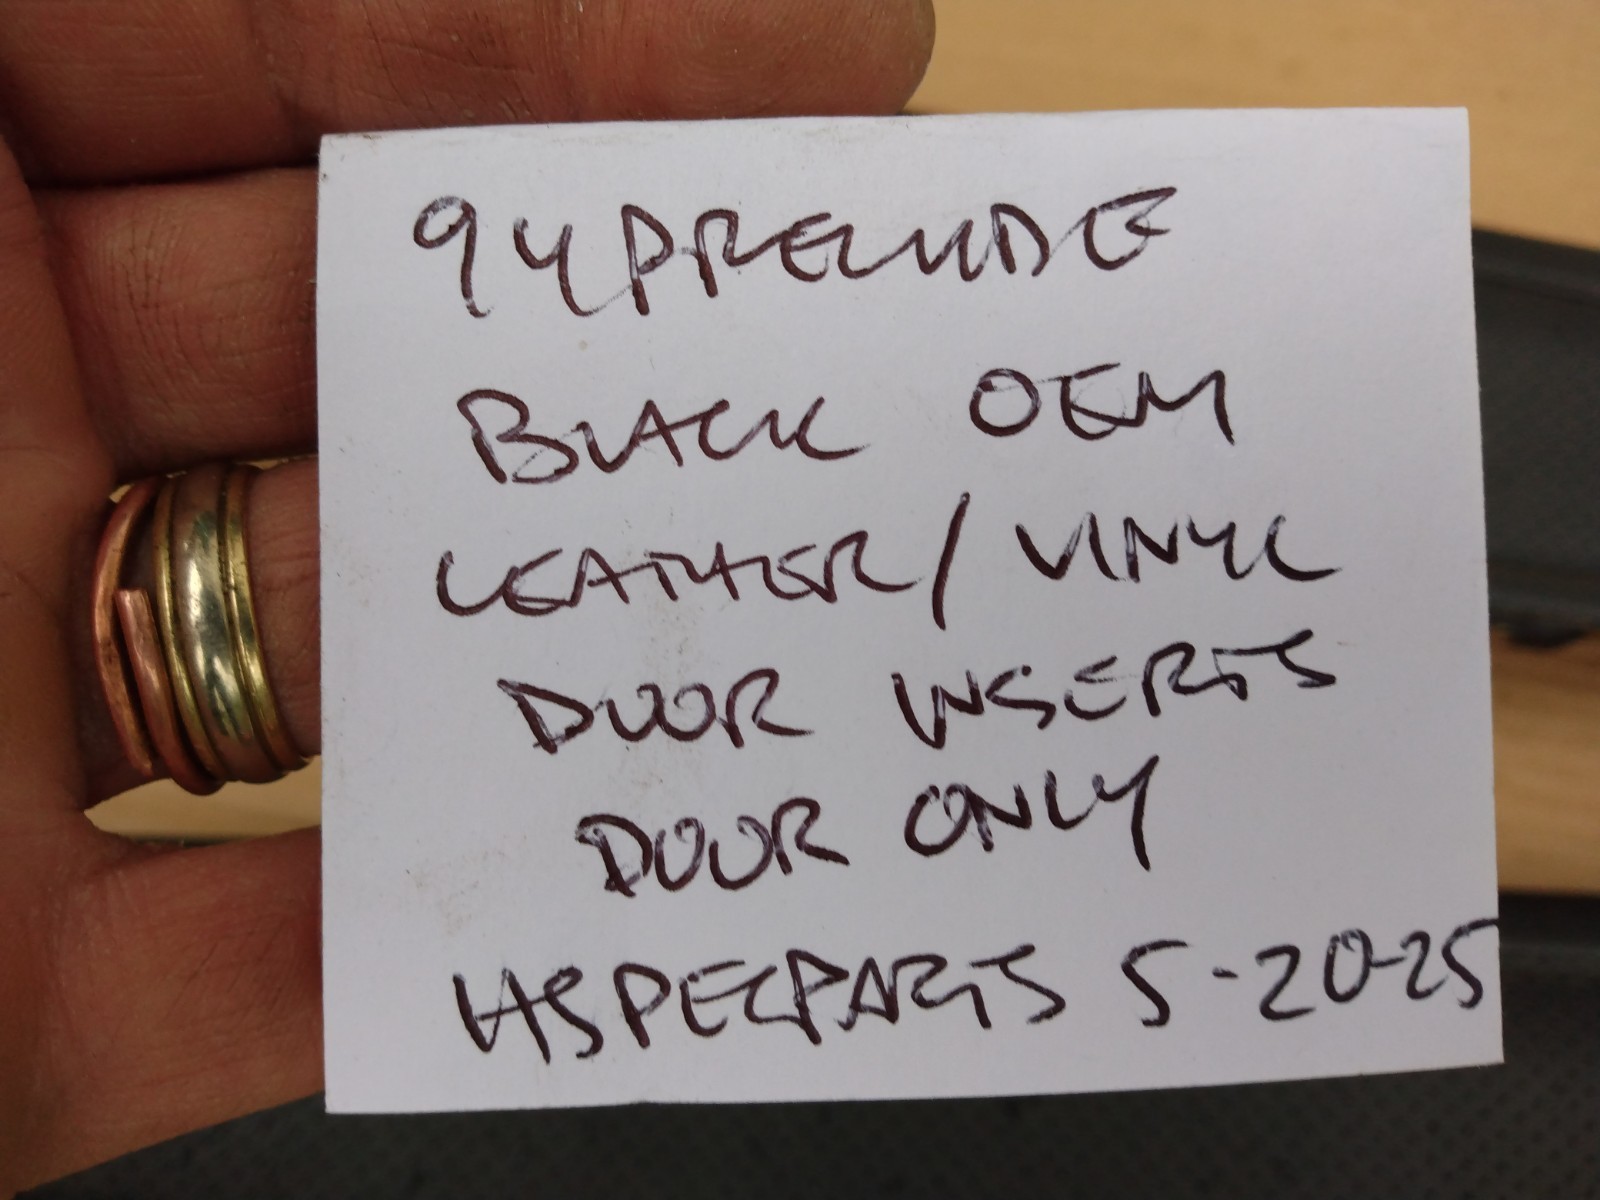 94 PRELUDE
BLACK OEM
LEATHER/VINYL
DOOR INSERTS
DOOR ONLY
HSPECPARTS 5-20-25